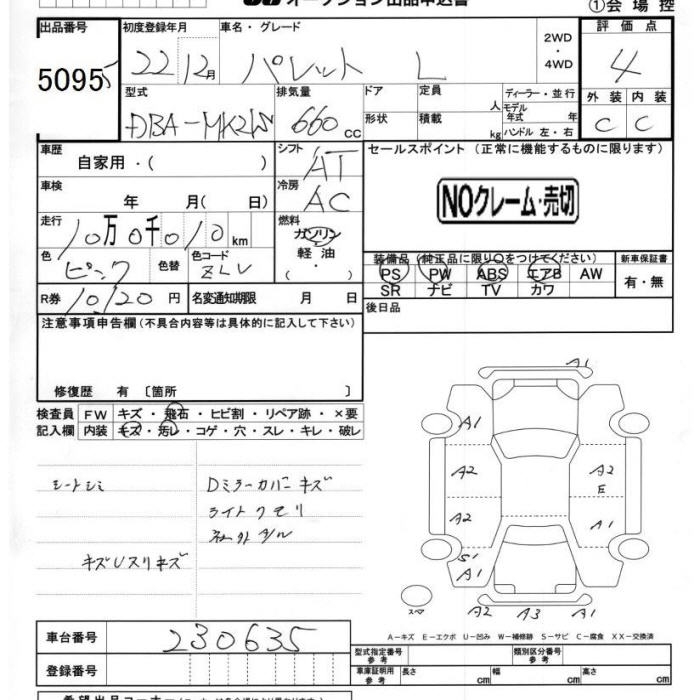 オークション出品申込書
①会場控
出品番号 初度登録年月 車名・グレード 2WD ・ 4WD 評価点
5095 22 12月 パレット L 4
型式 排気量 ドア 定員 人 ディーラー・並行 外装 内装
DBA-MK21S 660 CC 形状 積載 kg モデル年式 年 ハンドル 左・右 C C
車歴 自家用・( ) シフト AT セールスポイント (正常に機能するものに限ります)
車検 年 月( 日) 冷房 AC NOクレーム・売切
走行 10万0千010km 燃料 ガソリン 軽油 ・ ( ・ )
色 ピンク 色替 色コード ZLV 装備品 (純正品に限り○をつけてください) 新車保証書
PS PW ABS エアB AW 有・無
SR ナビ TV カワ
R券 10,120円 名変通知期限 月 日 後日品
注意事項申告欄 (不具合内容等は具体的に記入して下さい)
修復歴 有 〔箇所 〕
検査員 FW キズ・飛石・ヒビ割・リペア跡・×要
記入欄 内装 キズ・汚レ・コゲ・穴・スレ・キレ・破レ
シートシミ Dミラーカバーキズ
ライトクモリ
社外タル
キズUスリキズ
A1
A1
A2 A2
E
A2 A1
S1
A1
スマ A2 A3 A1
A-キズ E-エクボ U-凹み W-補修跡 S-サビ C-腐食 XX-交換済
車台番号 230635
型式指定番号 参考 類別区分番号 参考
登録番号 車庫証明用 参考 長さ cm 幅 cm 高さ cm